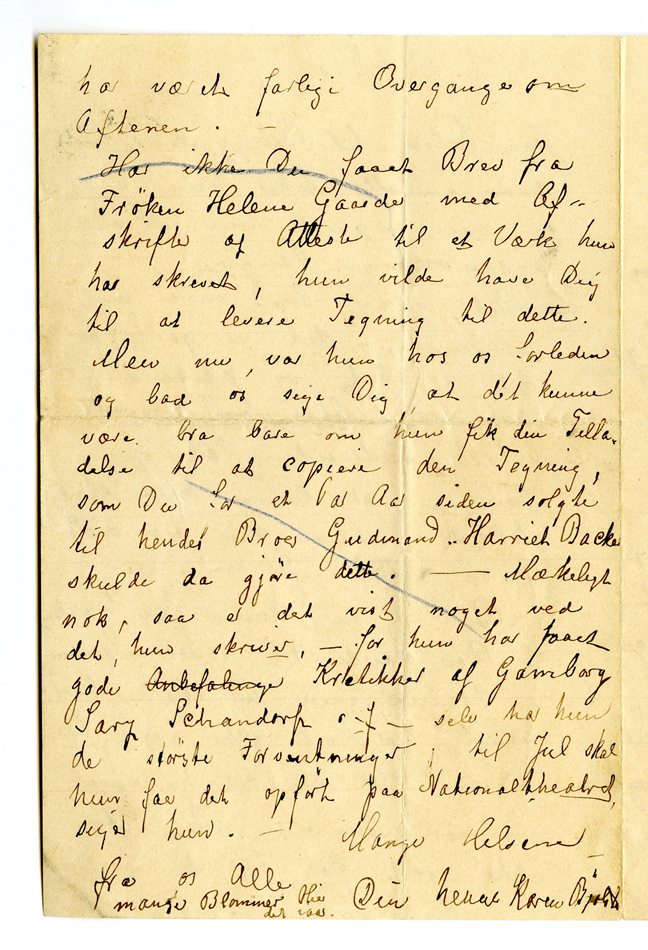 har været farlige Overgange om
Aftenen. —
Har ikke Du faaet Brev fra
Fröken Helene Gaarde med Af-
skrifte af Atteste til et Værk hun
har skrevet, hun vilde have Dig
til at levere Tegning til dette.
Men nu, var hun hos os forleden
og bad os sige Dig, at det kunne
være bra bare om hun fik din Tilla-
delse til at copiere den Tegning,
som Du for et Par Aar siden solgte
til hendes Broer Gudmand.. Harriet Backer
skulde da gjöre dette. — Mærkeligt
nok, saa er det vist noget ved
det, hun skriver, — for hun har faaet
gode Anbefalinge Kritikker af Gamborg
Schandorf o — selv har hun
de störste Forventninger, til Jul skal
hun faae det opfört paa Nationaltheatret,
siger hun. — Mange Helsene
fra os Alle
mange Blommer Hie
det iaar.
Din henne Karen